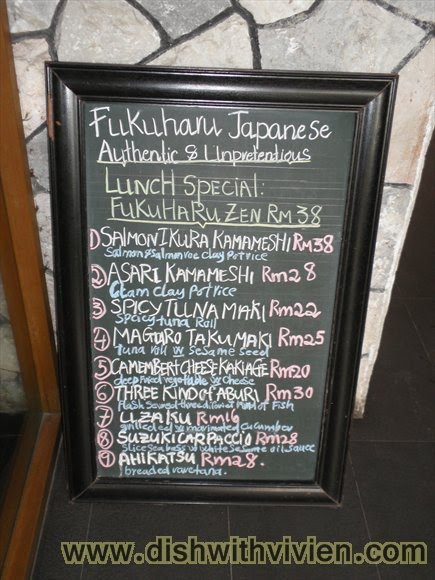 Fukuharu Japanese
Authentic & Unpretentious
LUNCH SPECIAL:
FUKUHARU ZEN RM 38
① SALMON IKURA KAMAMESHI RM38
Salmon & salmon roe clay pot rice
② ASARI KAMAMESHI RM28
Clam clay pot rice
③ SPICY TUNA MAKI RM22
Spicy tuna Roll
④ MAGURO TAKU MAKI RM25
tuna roll w sesame seed
⑤ CAMEMBERT CHEESE KAKIAGE RM20
deep fried vegetable w cheese
⑥ THREE KIND OF ABURI RM30
Flash seared three kind of Fish
⑦ UZAKU RM16
grilled eel w marinated cucumber
⑧ SUZUKI CARPACCIO RM28
slice sea bass w white sesame oil sauce
⑨ AHI KATSU RM28.
breaded rare tuna.
www.dishwithvivien.com